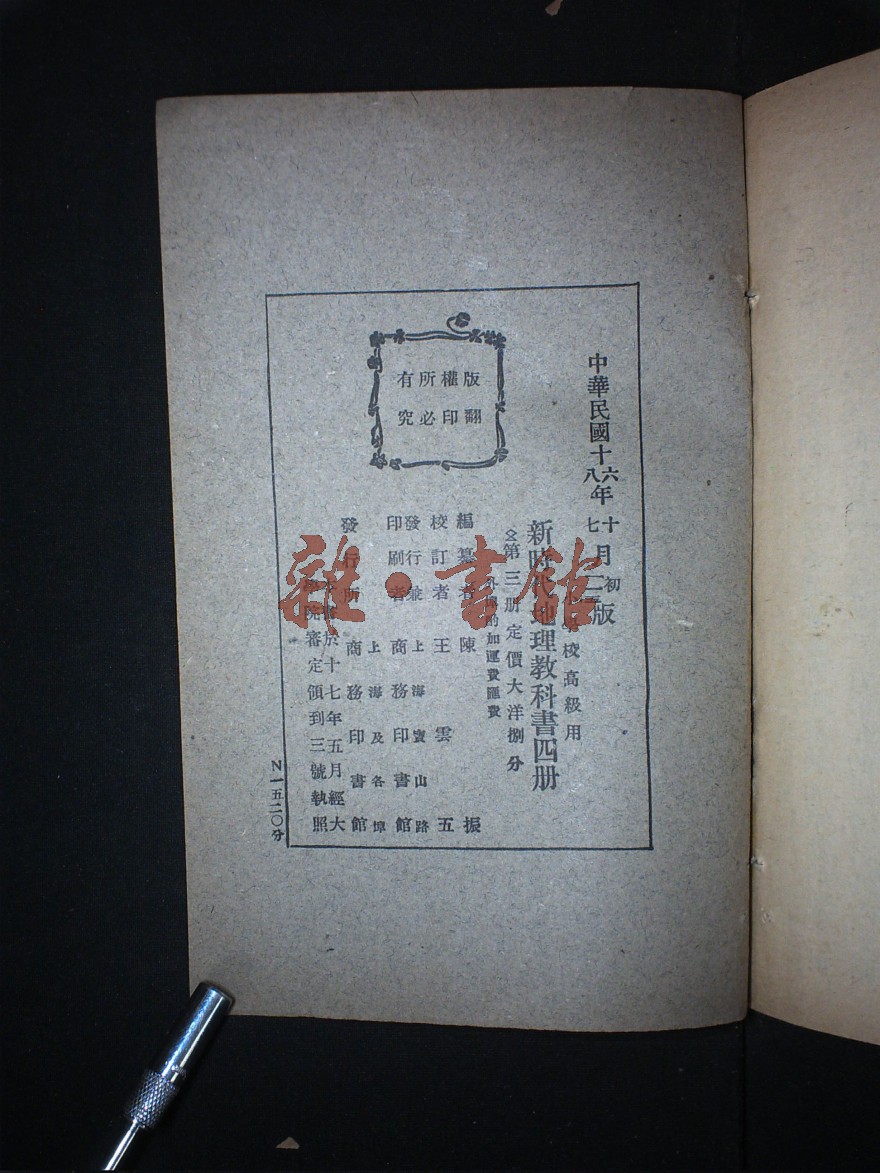 中華民國十六年十月初版
八七
小學校高級用
新時代地理教科書四册
第三册定價大洋捌分
外埠酌加運費匯費
版權所有
翻印必究
編纂者 陳振
校訂者 王雲五
發行兼 上海寶山路
印刷者 商務印書館
上海及各埠
發行所 商務印書館
本書於十七年五月經大
學院審定領到三號執照
N一五二〇分
雜·書館